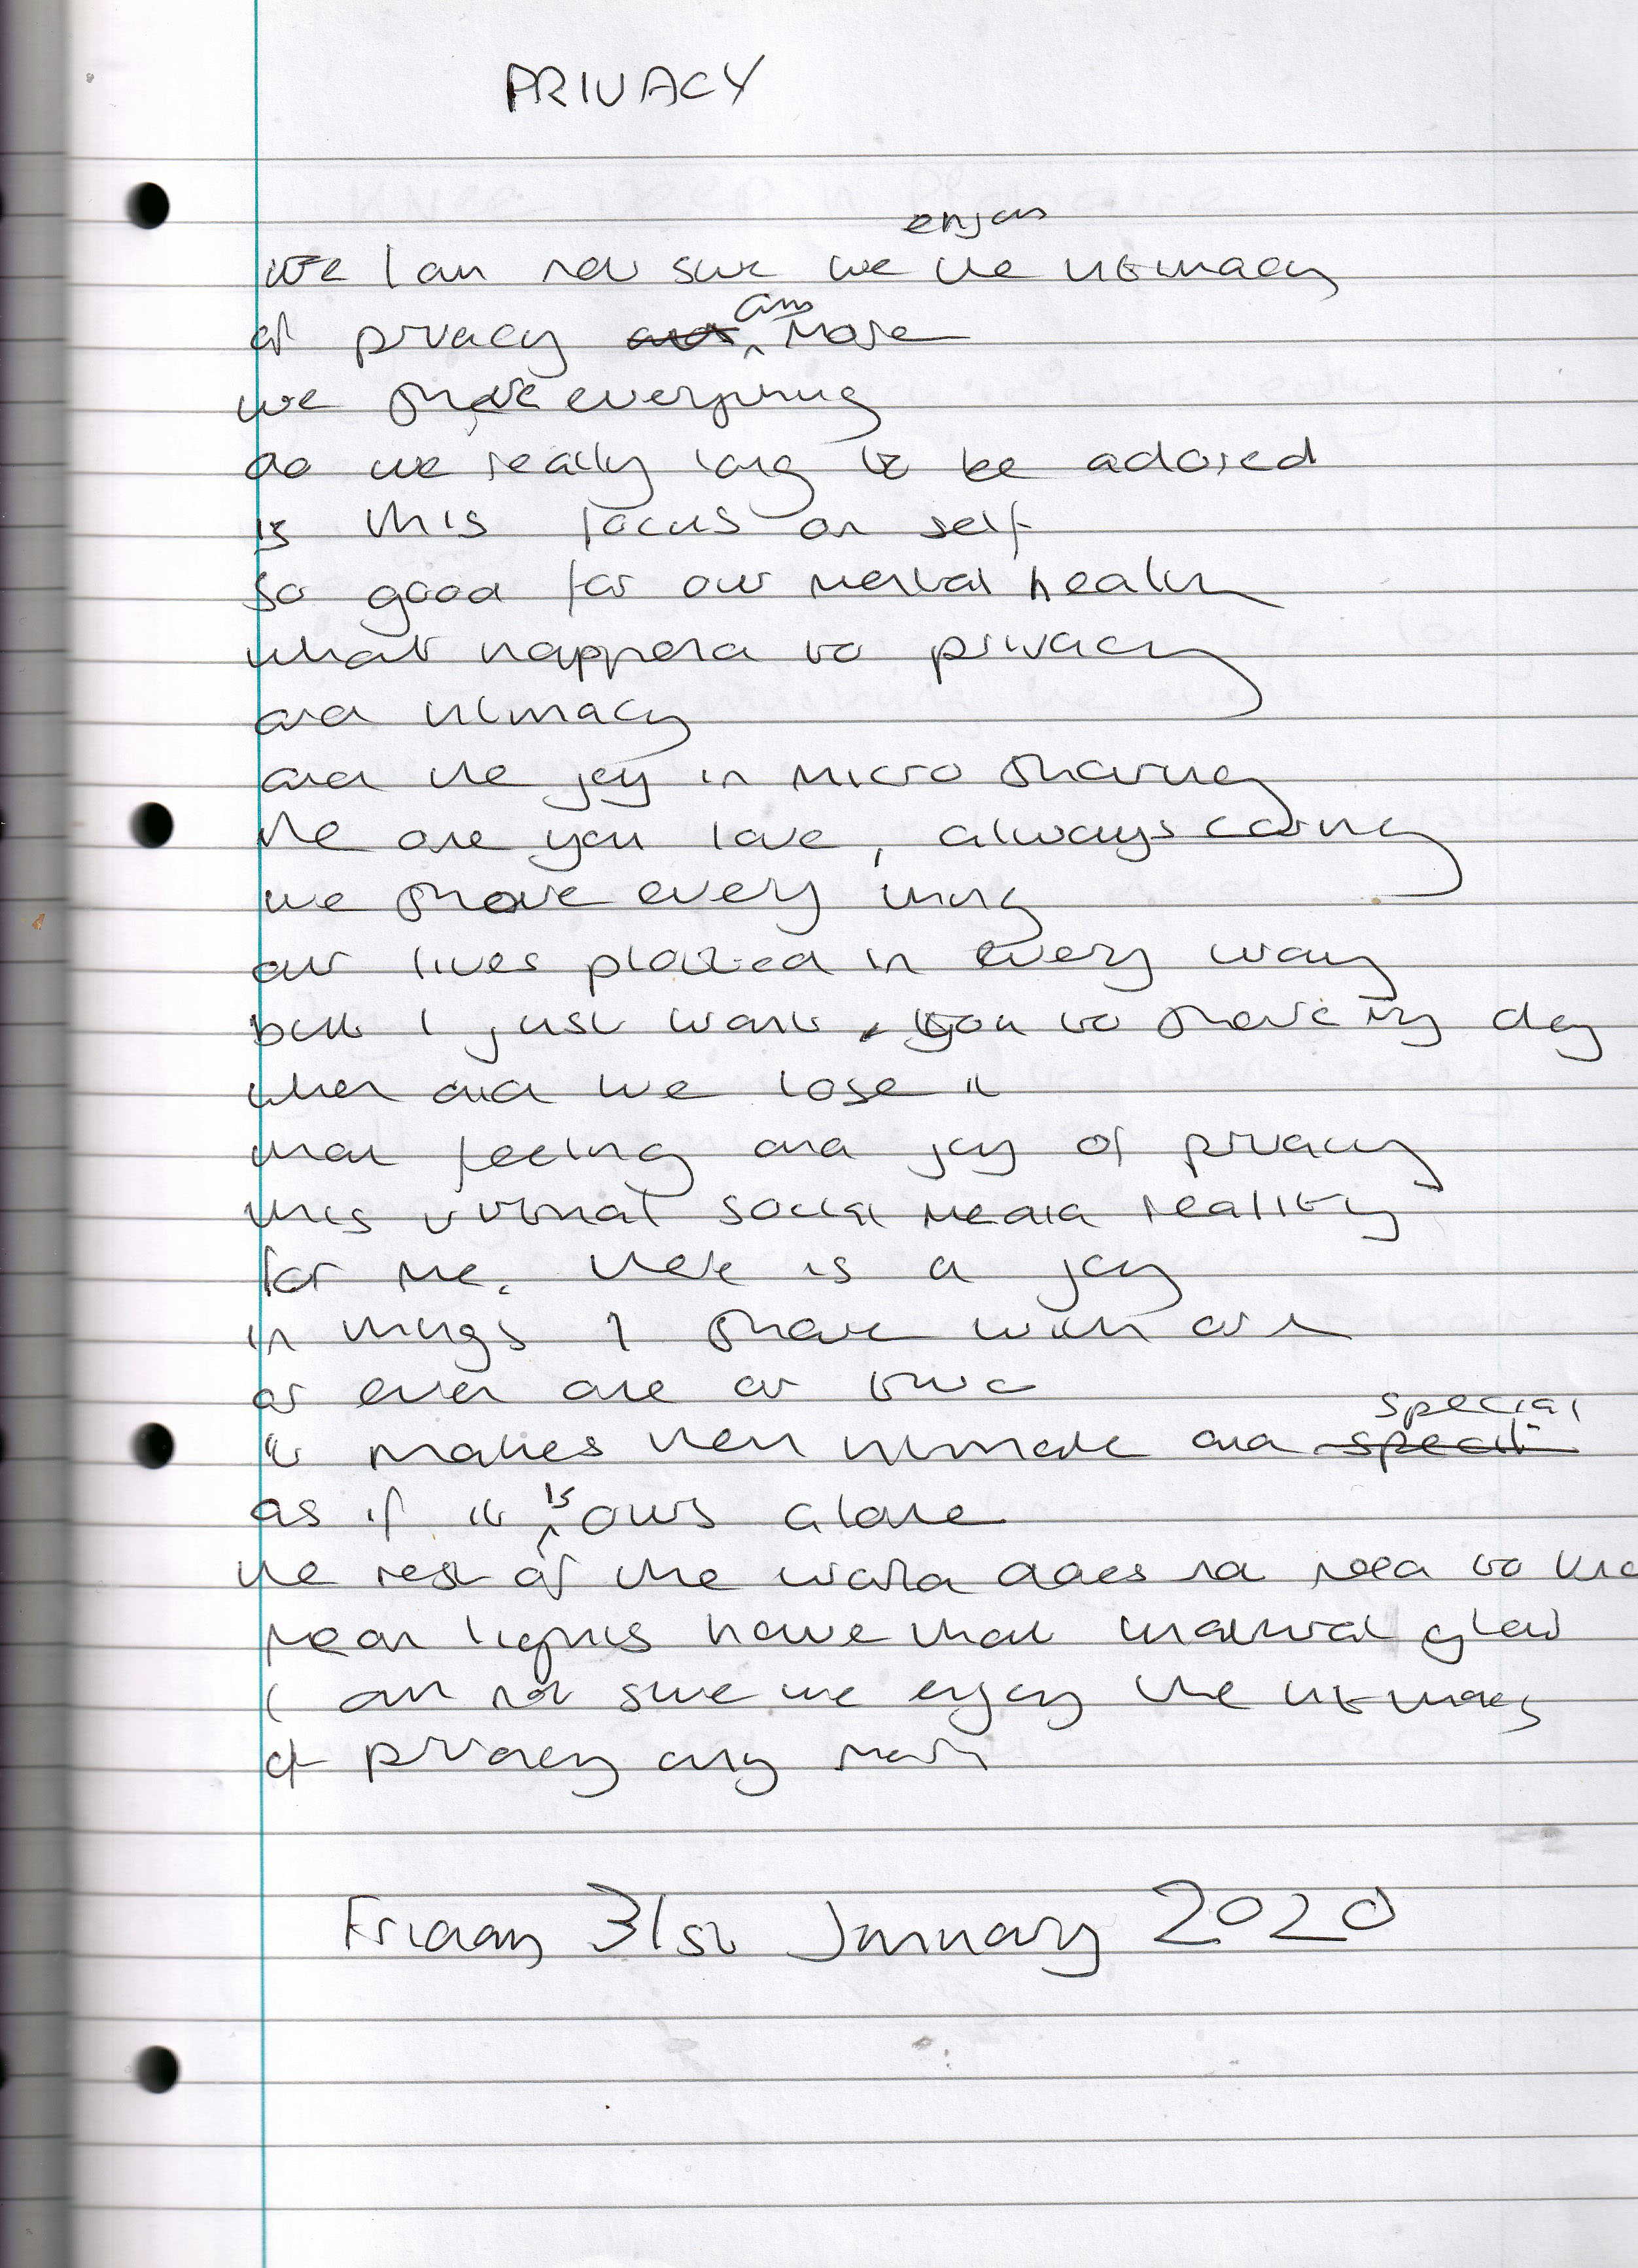 PRIVACY
enjoy
we I am not sure we the intimacy
of privacy any more
we share everything
do we really long to be adored
is this focus on self
so good for our mental health
what happend to privacy
and intimacy
and the joy in micro sharing
the one you love, always caring
we share every thing
our lives plastered in every way
but I just want you to share my day
when did we lose it
that feeling and joy of privacy
this virtual social media reality
for me. there is a joy
in things I share with one
or even one or two
it makes them intimate and special
as if it is ours alone
the rest of the world does not need to
neon lights have that unnatural glow
I am not sure we enjoy the intimacy
of privacy any more
Friday 31st January 2020